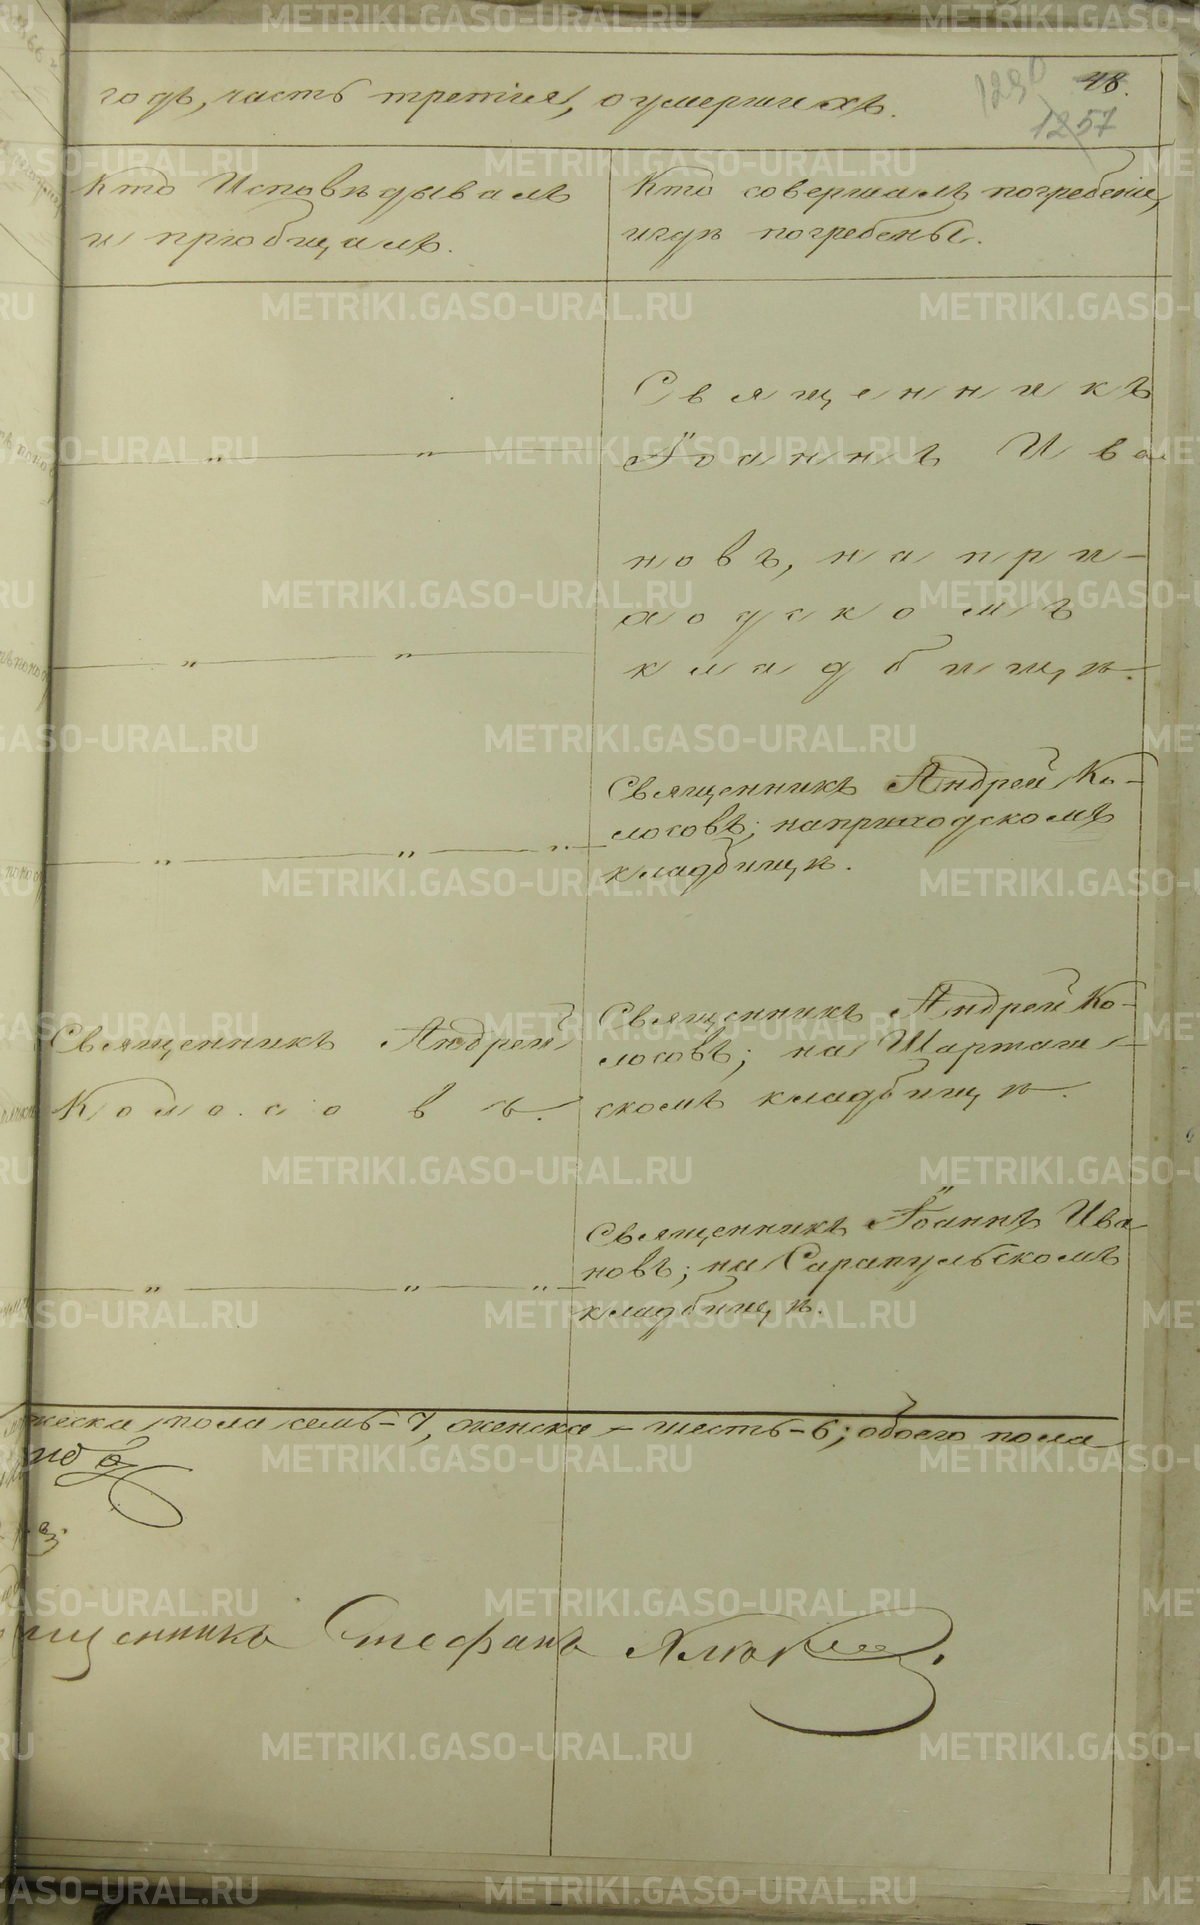 годъ, часть третія, о умершихъ.
48.
1290
1257
Кто Исповѣдывалъ
и пріобщалъ.
Кто совершалъ погребеніе,
и гдѣ погребены.
Священникъ
Іоаннъ Ива
новъ, на при-
ходскомъ
кладбищѣ.
Священникъ Андрей Ко-
лосовъ; на приходскомъ
кладбищѣ.
Священникъ Андрей
Колосовъ.
Священникъ Андрей Ко-
лосовъ; на Шарташ-
скомъ кладбищѣ.
Священникъ Іоаннъ Ива
новъ; на Сарапульскомъ
кладбищѣ.
жеска пола семь-7, женска - шесть-6; обоего пола
щенникъ Стефанъ
METRIKI.GASO-URAL.RU